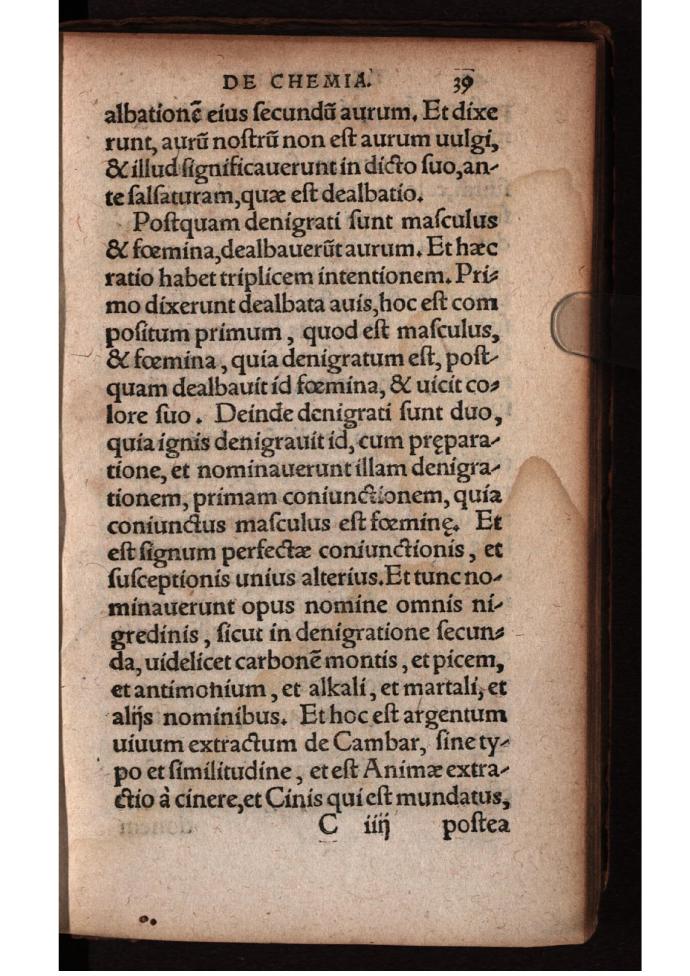 DE CHEMIA. 39
albationē eius secundū aurum. Et dixe
runt, aurū nostrū non est aurum uulgi,
& illud significauerunt in dicto suo, an-
te salsaturam, quæ est dealbatio.
Postquam denigrati sunt masculus
& fœmina, dealbauerūt aurum. Et hæc
ratio habet triplicem intentionem. Pri-
mo dixerunt dealbata auis, hoc est com
positum primum, quod est masculus,
& fœmina, quia denigratum est, post-
quam dealbauit id fœmina, & uicit co-
lore suo. Deinde denigrati sunt duo,
quia ignis denigrauit id, cum prępara-
tione, et nominauerunt illam denigra-
tionem, primam coniunctionem, quia
coniunctus masculus est fœminę. Et
est signum perfectæ coniunctionis, et
susceptionis unius alterius. Et tunc no-
minauerunt opus nomine omnis ni-
gredinis, sicut in denigratione secun-
da, uidelicet carbonē montis, et picem,
et antimonium, et alkali, et martali, et
alijs nominibus. Et hoc est argentum
uiuum extractum de Cambar, sine ty-
po et similitudine, et est Animæ extra-
ctio à cinere, et Cinis qui est mundatus,
C iiij postea